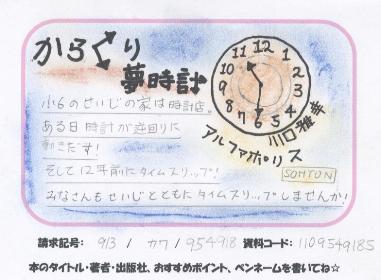 からくり
夢時計
12
1
2
3
4
5
6
7
8
9
10
11
川口雅幸
アルファポリス
小6のせいじの家は時計店。
ある日時計が逆回りに
動きだす!
そして12年前にタイムスリップ!
SOMTON
みなさんもせいじとともにタイムスリップしませんか!
請求記号: 913 / カワ / 954918 資料コード: 1109549185
本のタイトル・著者・出版社、おすすめポイント、ペンネームを書いてね☆